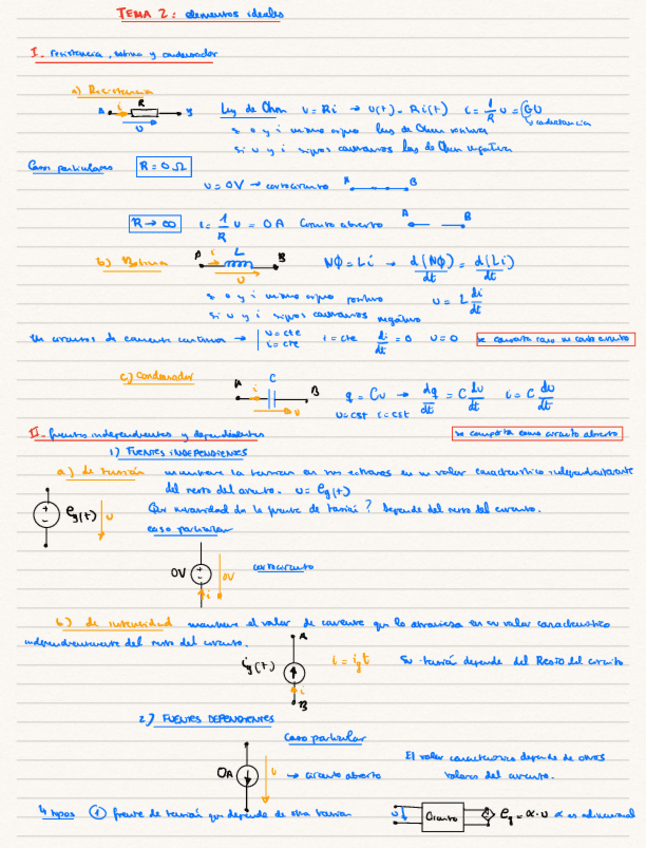 TEMA 2: elementos ideales
I. resistencia, bobina y condensador
a) Resistencia
A i R B
u
Ley de Ohm u = Ri → u(t) = Ri(t) i = 1/R u = GU
conductancia
si u y i mismo signo ley de Ohm positiva
si u y i signos contrarios ley de Ohm negativa
Casos particulares R = 0 Ω
u = 0V → cortocircuito A B
R → ∞ i = 1/R u = 0A Circuito abierto A B
b) Bobina A i L B
u
NΦ = Li → d(NΦ)/dt = d(Li)/dt
si u y i mismo signo positivo u = L di/dt
si u y i signos contrarios negativo
En circuitos de corriente continua → u = cte i = cte i = cte di/dt = 0 u = 0 se comporta como un cortocircuito
c) Condensador A i C B
u
q = Cu → dq/dt = C du/dt i = C du/dt
u = cst i = cst
II. fuentes independientes y dependientes
se comporta como circuito abierto
1) FUENTES INDEPENDIENTES
a) de tensión mantiene la tensión en sus extremos en su valor característico independientemente
del resto del circuito. u = eg(t)
eg(t) u
Que intensidad da la fuente de tensión? Depende del resto del circuito.
caso particular
0V i 0V cortocircuito
b) de intensidad mantiene el valor de corriente que lo atraviesa en su valor característico
independientemente del resto del circuito.
A
ig(t) i = igt Su tensión depende del Resto del circuito
i
B
2) FUENTES DEPENDIENTES
Caso particular
0A u → circuito abierto
El valor característico depende de otros
valores del circuito.
4 tipos ① fuente de tensión que depende de otra tensión u Circuito eg = α·u α es adimensional